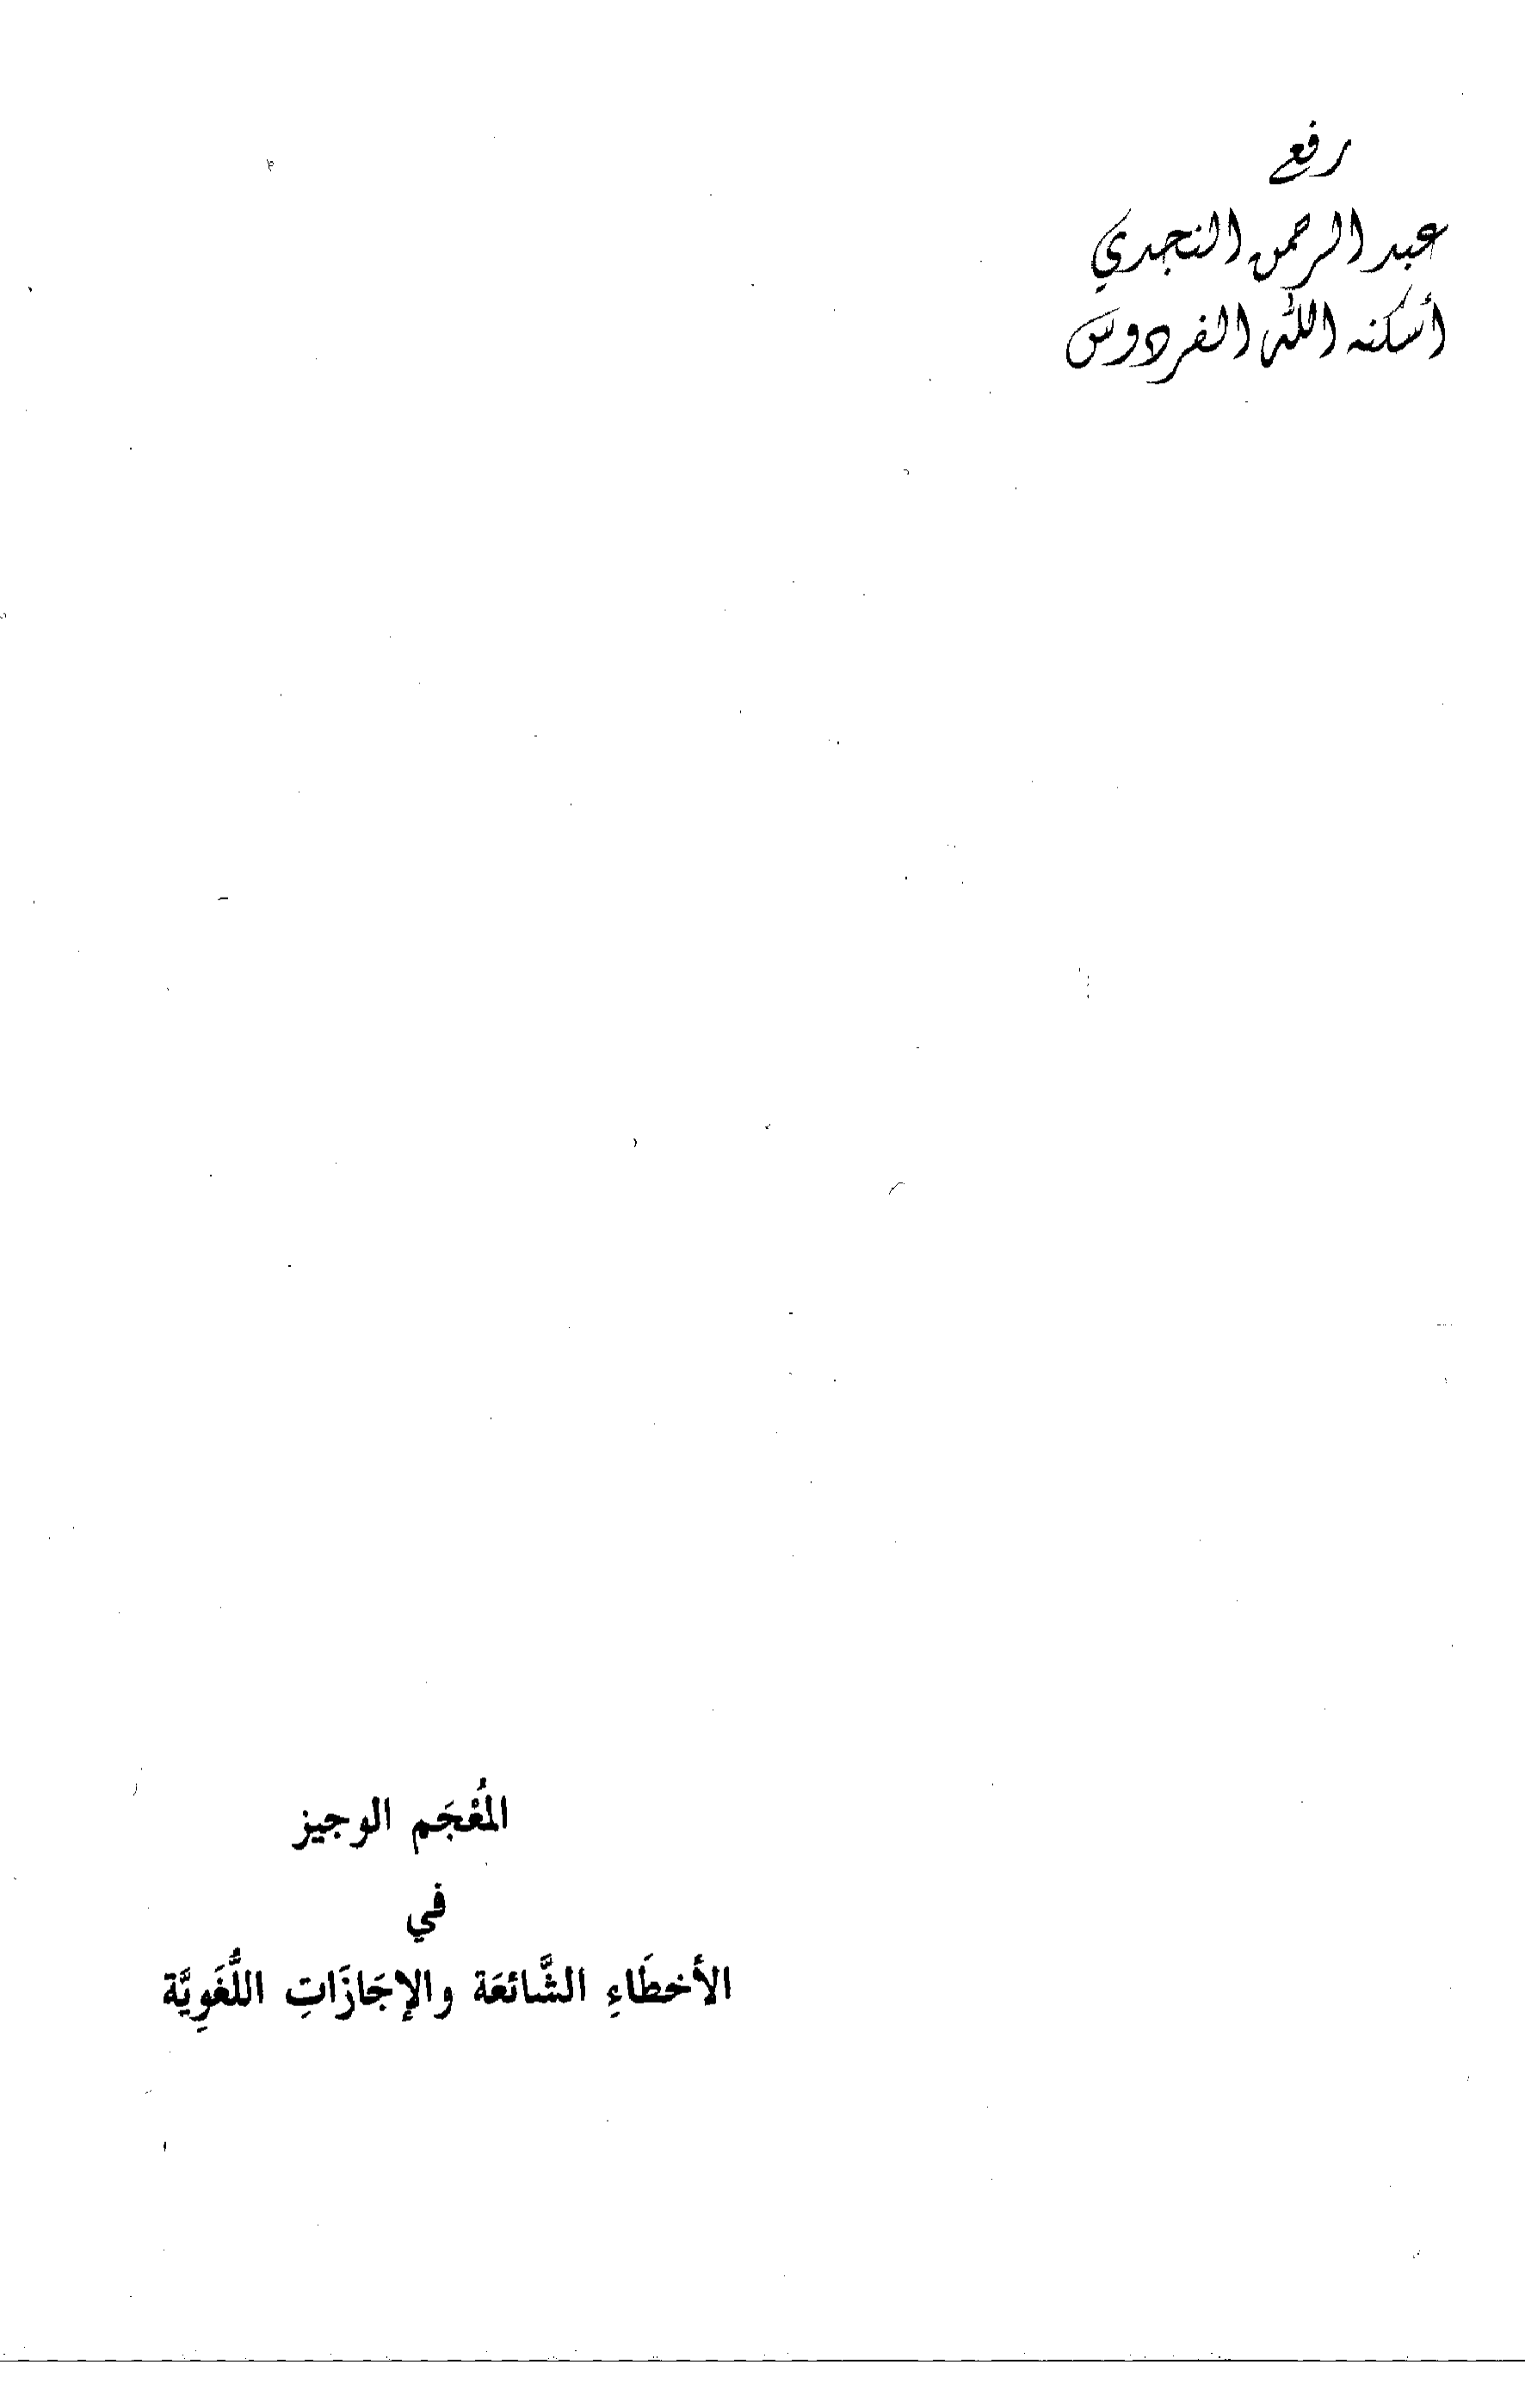 رفع
عبد الرحمن النجدي
أسكنه الله الفردوس
المُعْجَم الوجيز
في
الأخطَاءِ الشَّائعَة والإجَازَاتِ اللُّغَوِيَّة